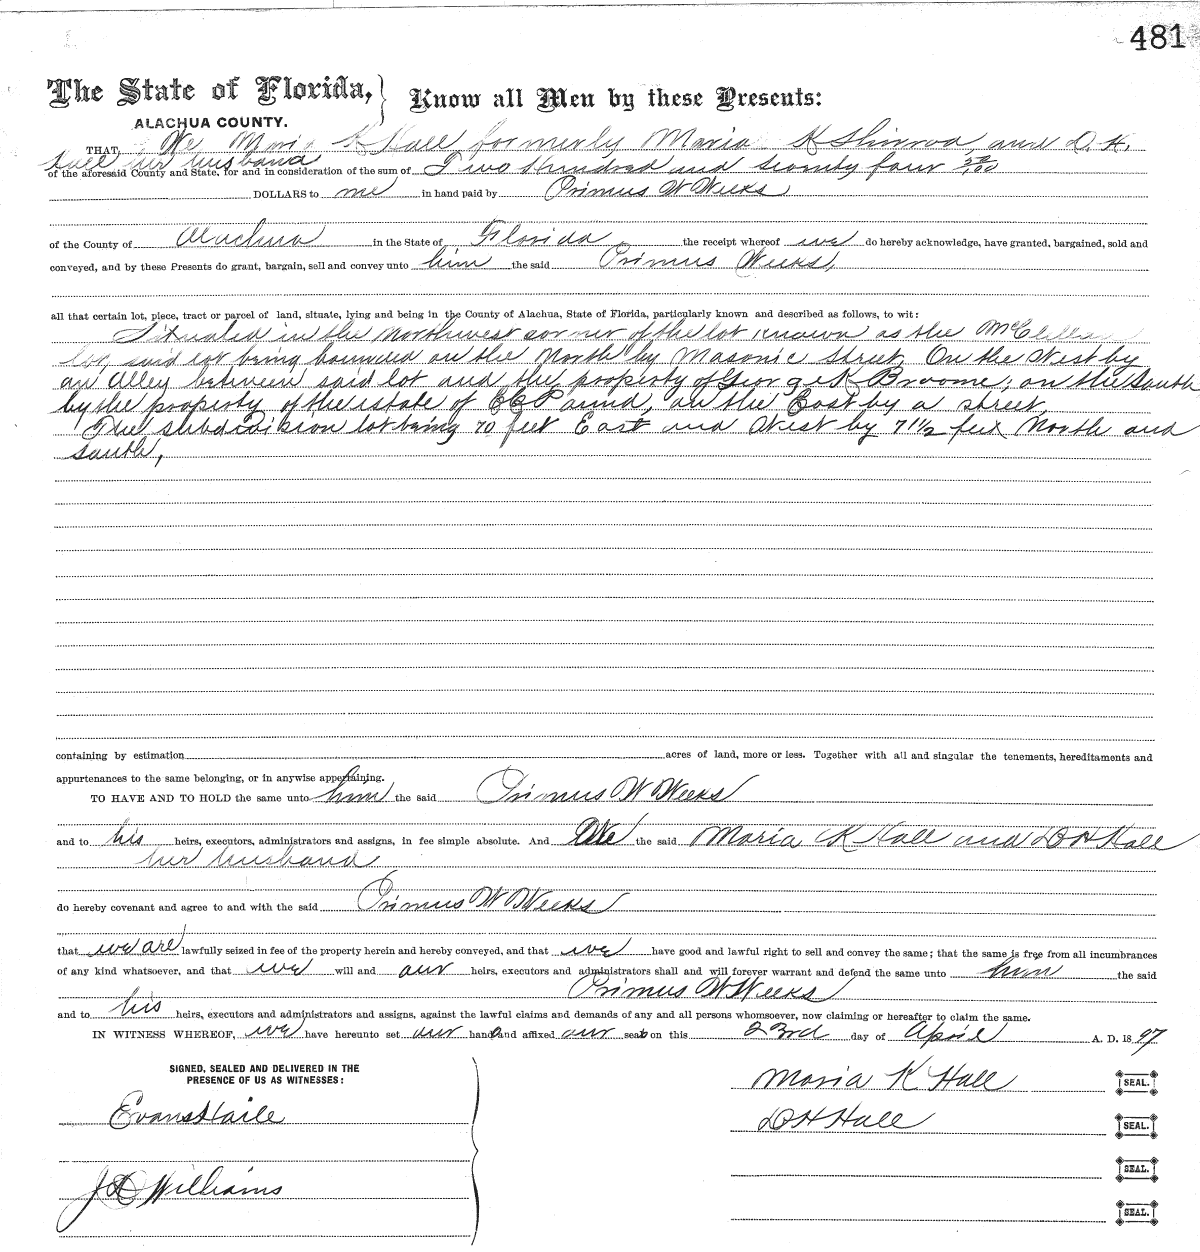 481
The State of Florida, } Know all Men by these Presents:
ALACHUA COUNTY.
THAT We Maria K Hall formerly Maria K and D. H.
Hall her husband
of the aforesaid County and State, for and in consideration of the sum of Two Hundred and seventy four
DOLLARS to me in hand paid by Primus W Weeks
of the County of Alachua in the State of Florida the receipt whereof we do hereby acknowledge, have granted, bargained, sold and
conveyed, and by these Presents do grant, bargain, sell and convey unto him the said Primus Weeks,
all that certain lot, piece, tract or parcel of land, situate, lying and being in the County of Alachua, State of Florida, particularly known and described as follows, to wit:
Situated in the Northwest corner of the lot known as the McClellan
lot, said lot being bounded on the North by Masonic Street, On the West by
an Alley between said lot and the property of George K Broome, on the South
by the property of the estate of, on the East by a street,
The subdivision lot being 70 feet East and West by 71 1/2 feet North and
South,
containing by estimation acres of land, more or less. Together with all and singular the tenements, hereditaments and
appurtenances to the same belonging, or in anywise appertaining.
TO HAVE AND TO HOLD the same unto him the said Primus W Weeks
and to his heirs, executors, administrators and assigns, in fee simple absolute. And We the said Maria K Hall and D H Hall
her husband
do hereby covenant and agree to and with the said Primus W Weeks
that we are lawfully seized in fee of the property herein and hereby conveyed, and that we have good and lawful right to sell and convey the same; that the same is free from all incumbrances
of any kind whatsoever, and that we will and our heirs, executors and administrators shall and will forever warrant and defend the same unto him the said
Primus W Weeks
and to his heirs, executors and administrators and assigns, against the lawful claims and demands of any and all persons whomsoever, now claiming or hereafter to claim the same.
IN WITNESS WHEREOF, we have hereunto set our hands and affixed our seals on this 23rd day of April A. D. 1897
SIGNED, SEALED AND DELIVERED IN THE
PRESENCE OF US AS WITNESSES:
Maria K Hall SEAL.
Evans Haile
D H Hall SEAL.
SEAL.
Williams
SEAL.